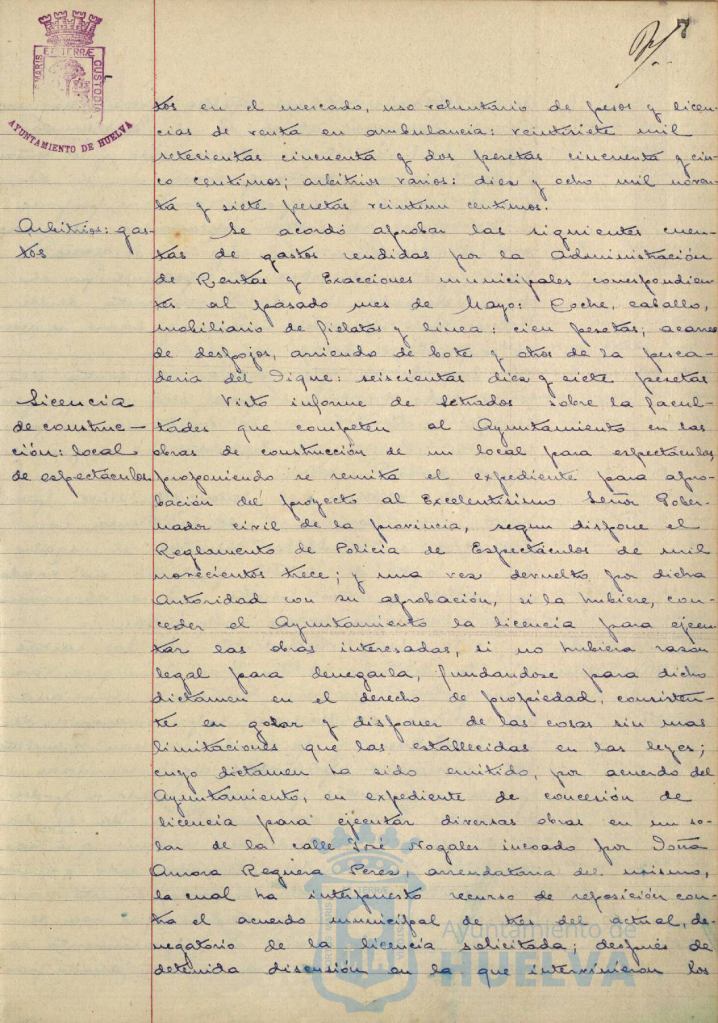 MARIS ET TERRÆ CUSTODIA
AYUNTAMIENTO DE HUELVA
tos en el mercado, uso voluntario de pesos y licen-
cias de venta en ambulancia: veintisiete mil
setecientas cincuenta y dos pesetas cincuenta y cin-
co centimos; arbitrios varios: diez y ocho mil noven-
ta y siete pesetas veintiun centimos.
Arbitrios: gas-
tos
Se acordó aprobar las siguientes cuen-
tas de gastos rendidas por la Administración
de Rentas y Exacciones municipales correspondien-
tes al pasado mes de Mayo: Coche, caballo,
mobiliario de fielatos y linea: cien pesetas; acarreo
de despojos, arriendo de bote y otros de la pesca-
deria del Dique: seiscientas diez y siete pesetas
Licencia
de construc-
ción: local
de espectaculos
Visto informe de Letrados sobre la facul-
tades que competen al Ayuntamiento en las
obras de construcción de un local para espectaculos,
proponiendo se remita el expediente para apro-
bación del proyecto al Excelentisimo Señor Gober-
nador civil de la provincia, segun dispone el
Reglamento de Policia de Espectáculos de mil
novecientos trece; y una vez devuelto por dicha
Autoridad con su aprobación, si la hubiere, con-
ceder el Ayuntamiento la licencia para ejecu-
tar las obras interesadas, si no hubiera razon
legal para denegarla, fundandose para dicho
dictamen en el derecho de propiedad, consisten-
te en gozar y disponer de las cosas sin mas
limitaciones que las establecidas en las leyes;
cuyo dictamen ha sido emitido, por acuerdo del
Ayuntamiento, en expediente de concesión de
licencia para ejecutar diversas obras en un so-
lar de la calle José Nogales incoado por Doña
Aurora Reguera Perez, arrendataria del mismo,
la cual ha interpuesto recurso de reposición con-
tra el acuerdo municipal de tres del actual, de-
negatorio de la licencia solicitada; después de
detenida discusión en la que intervinieron los
Ayuntamiento de
HUELVA